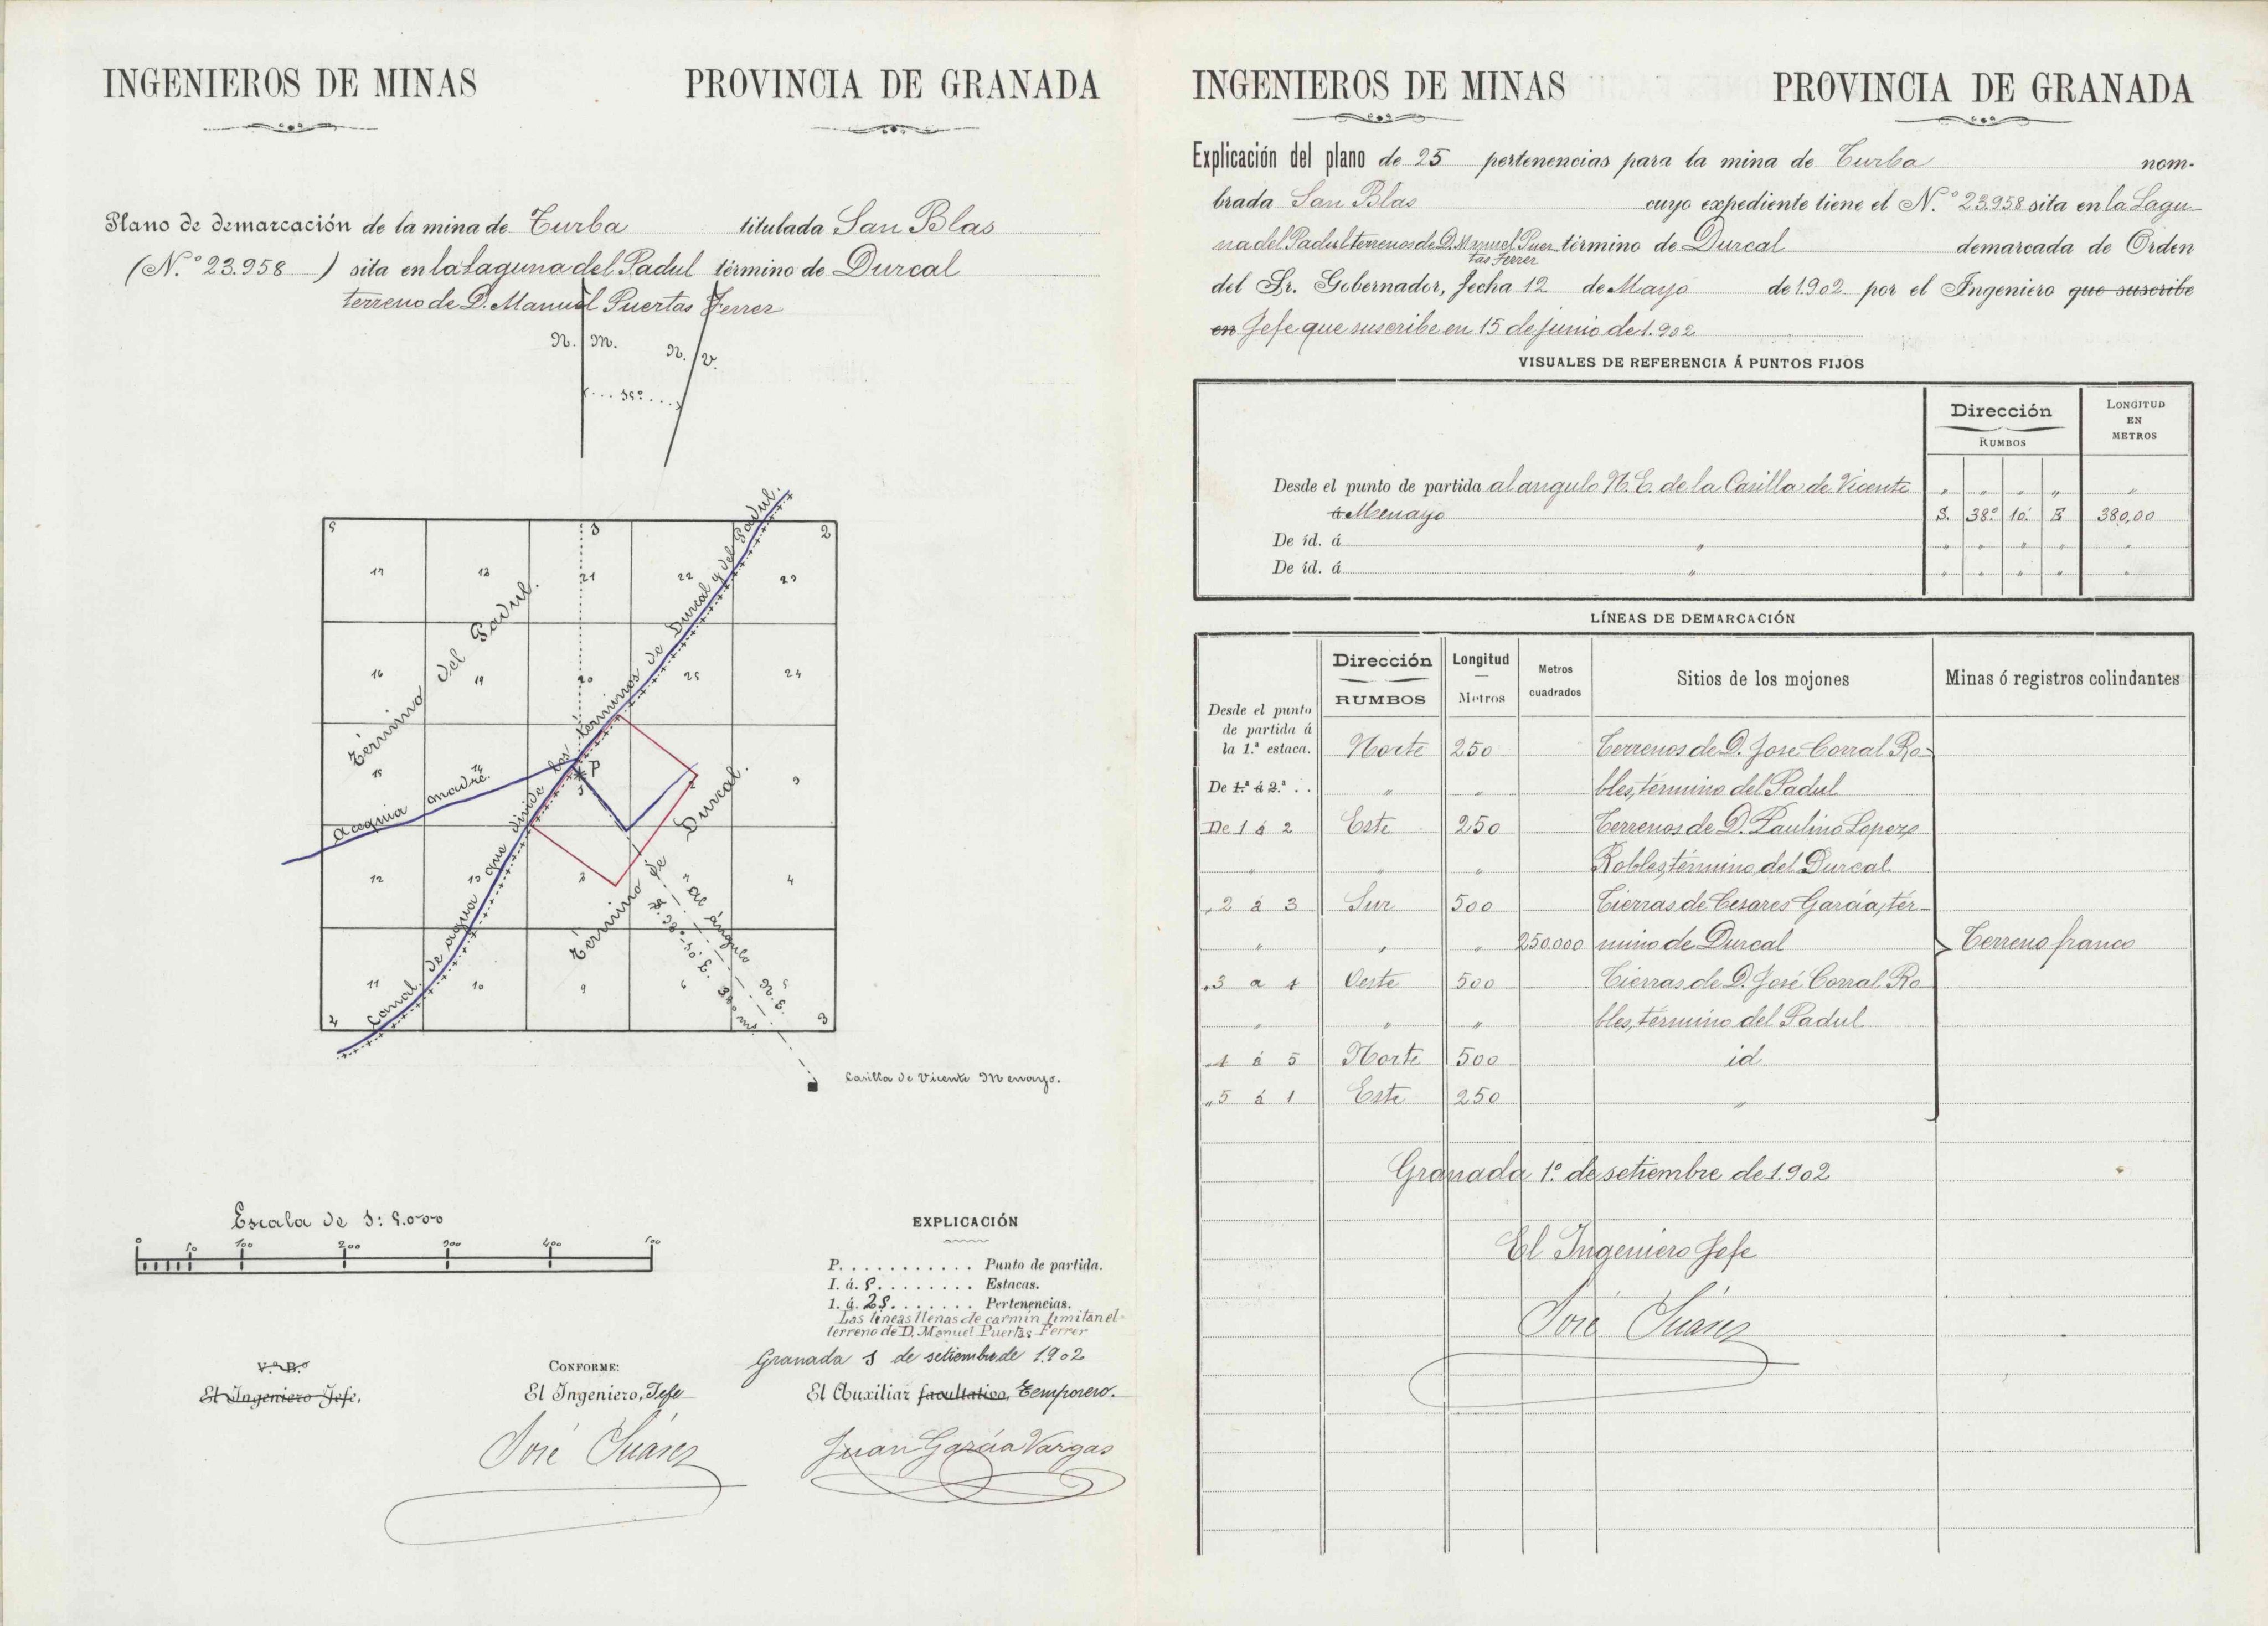 INGENIEROS DE MINAS PROVINCIA DE GRANADA
Plano de demarcación de la mina de Turba titulada San Blas
(N.º 23.958) sita en la Laguna del Padul término de Durcal
terreno de D. Manuel Puertas Ferrer
N. M. N. V.
5 1 2
17 18 21 22 23
16 19 20 25 24
15 14 1 2 3
12 13 4
11 10 9 6 5
4 3
P
Término del Padul.
Acequia madre.
Canal de agua que divide los términos de Durcal y del Padul.
Término de Durcal.
al ángulo N.E.
380 ms.
Casilla de Vicente Menayo.
Escala de 1: 5.000
0 50 100 200 300 400 500
EXPLICACIÓN
P. . . . . . . . . . . . Punto de partida.
1. á. 5. . . . . . . . . Estacas.
1. á. 25. . . . . . . Pertenencias.
Las líneas llenas de carmin limitan el
terreno de D. Manuel Puertas Ferrer
Granada 1 de setiembre de 1.902
V.º B.º CONFORME:
El Ingeniero Jefe, El Ingeniero, Jefe El Auxiliar facultativo, Temporero.
José Suárez Juan García Vargas
INGENIEROS DE MINAS PROVINCIA DE GRANADA
Explicación del plano de 25 pertenencias para la mina de Turba nom-
brada San Blas cuyo expediente tiene el N.º 23.958 sita en la Lagu
na del Padul terrenos de D. Manuel Puer término de Durcal demarcada de Orden
tas Ferrer
del Sr. Gobernador, fecha 12 de Mayo de 1.902 por el Ingeniero que suscribe
en Jefe que suscribe en 15 de junio de 1.902
VISUALES DE REFERENCIA Á PUNTOS FIJOS
Dirección LONGITUD EN METROS
RUMBOS
Desde el punto de partida al angulo N.E. de la Casilla de Vicente " " " " "
á Menayo S. 38º 10' E 380,00
De íd. á " " " " " "
De íd. á " " " " " "
LÍNEAS DE DEMARCACIÓN
Dirección Longitud Metros cuadrados Sitios de los mojones Minas ó registros colindantes
RUMBOS Metros
Desde el punto de partida á la 1.ª estaca. Norte 250 Terrenos de D. Jose Corral Ro-
De 1.ª á 2.ª . . " " bles, término del Padul
De 1 á 2 Este 250 Terrenos de D. Paulino Lopez
" " " Robles, término del Durcal
" 2 á 3 Sur 500 Tierras de Cesares García, tér-
" " " 250.000 mino de Durcal Terreno franco
" 3 a 4 Oeste 500 Tierras de D. José Corral Ro
" " " bles, término del Padul
" 4 á 5 Norte 500 id
" 5 á 1 Este 250 "
Granada 1º de setiembre de 1.902
El Ingeniero Jefe
José Suárez